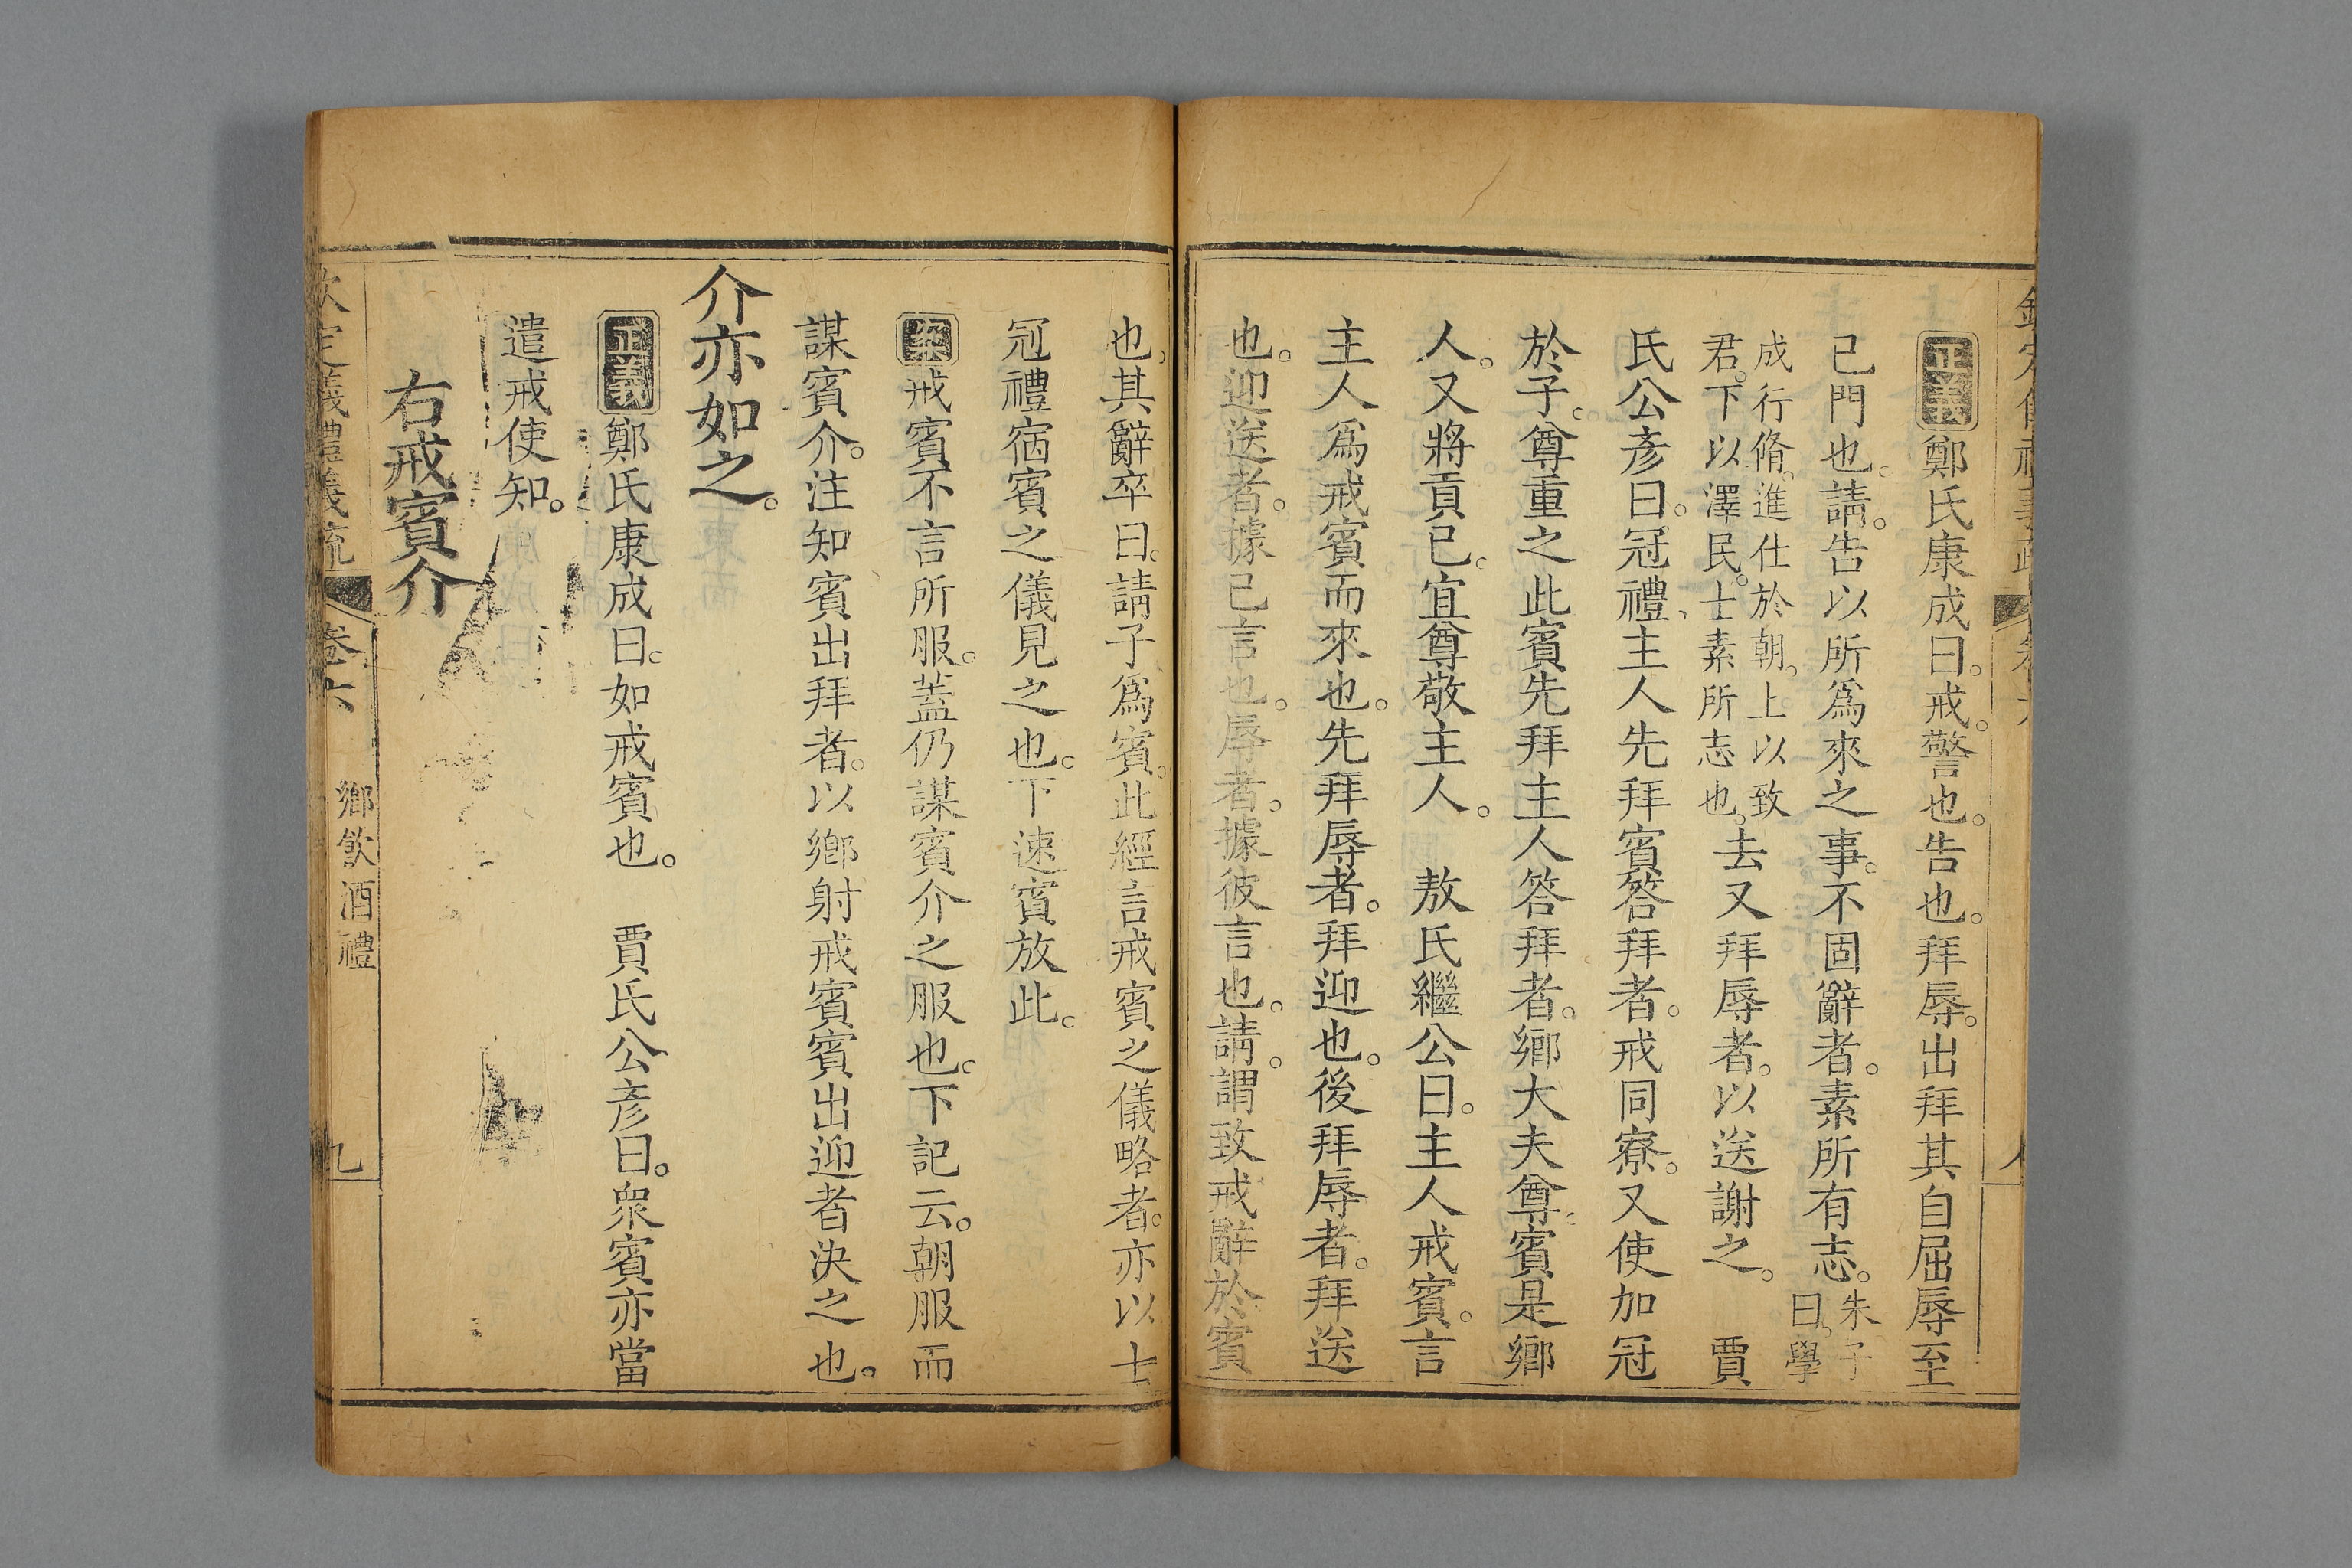 正義鄭氏康成曰。戒。警也。告也。拜辱。出拜其自屈辱至
己門也。請。告以所爲來之事。不固辭者。素所有志。朱子曰。學
成行脩。進仕於朝。上以致
君。下以澤民。士素所志也。去又拜辱者。以送謝之。　賈
氏公彥曰。冠禮、主人先拜賓答拜者。戒同寮。又使加冠
於子。尊重之此賓先拜主人答拜者。鄉大夫尊。賓是鄉
人。又將貢己。宜尊敬主人。　敖氏繼公曰。主人戒賓。言
主人爲戒賓而來也。先拜辱者。拜迎也。後拜辱者。拜送
也。迎送者。據己言也。辱者。據彼言也。請。謂致戒辭於賓
也、其辭卒曰。請子爲賓。此經言戒賓之儀略者。亦以士
冠禮宿賓之儀見之也。下速賓放此。
案戒賓不言所服。蓋仍謀賓介之服也。下記云。朝服而
謀賓介。注知賓出拜者。以鄉射戒賓賓出迎者決之也。
介亦如之。
正義鄭氏康成曰。如戒賓也。　賈氏公彥曰。衆賓亦當
遣戒使知。
右戒賓介
欽定儀禮義疏　卷六　鄉飲酒禮　九